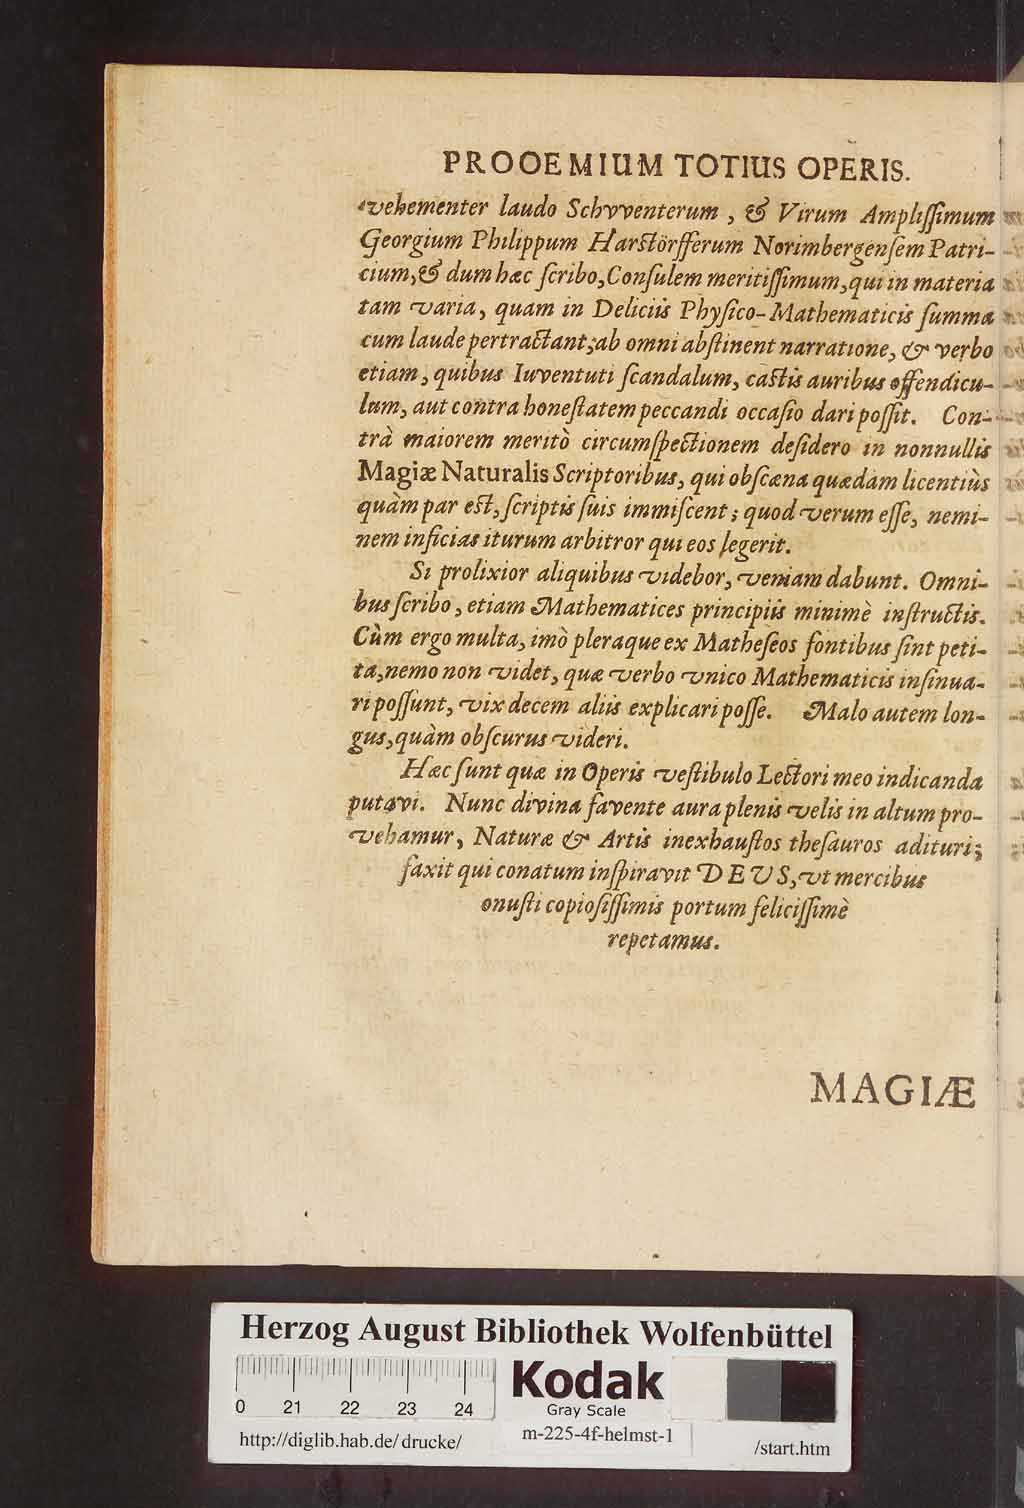 PROOEMIUM TOTIUS OPERIS.
vehementer laudo Schvventerum, & Virum Ampliſſimum
Georgium Philippum Harſtörfferum Norimbergenſem Patri-
cium, & dum hæc ſcribo, Conſulem meritiſſimum, qui in materia
tam varia, quam in Deliciis Phyſico-Mathematicis ſumma
cum laude pertractant; ab omni abſtinent narratione, & verbo
etiam, quibus Iuventuti ſcandalum, caſtis auribus offendicu-
lum, aut contra honeſtatem peccandi occaſio dari poſſit. Con-
trà maiorem meritò circumſpectionem deſidero in nonnullis
Magiæ Naturalis Scriptoribus, qui obſcæna quædam licentiùs
quàm par eſt, ſcriptis ſuis immiſcent; quod verum eſſe, nemi-
nem inficias iturum arbitror qui eos legerit.
Si prolixior aliquibus videbor, veniam dabunt. Omni-
bus ſcribo, etiam Mathematices principiis minimè inſtructis.
Cùm ergo multa, imò pleraque ex Matheſeos fontibus ſint peti-
ta, nemo non videt, quæ verbo vnico Mathematicis inſinua-
ri poſſunt, vix decem aliis explicari poſſe. Malo autem lon-
gus, quàm obſcurus videri.
Hæc ſunt quæ in Operis veſtibulo Lectori meo indicanda
putavi. Nunc divina favente aura plenis velis in altum pro-
vehamur, Naturæ & Artis inexhauſtos theſauros adituri;
faxit qui conatum inſpiravit DEVS, vt mercibus
onuſti copioſiſſimis portum feliciſſimè
repetamus.
MAGIÆ
Herzog August Bibliothek Wolfenbüttel
Kodak
Gray Scale
0 21 22 23 24
http://diglib.hab.de/drucke/
m-225-4f-helmst-1
/start.htm